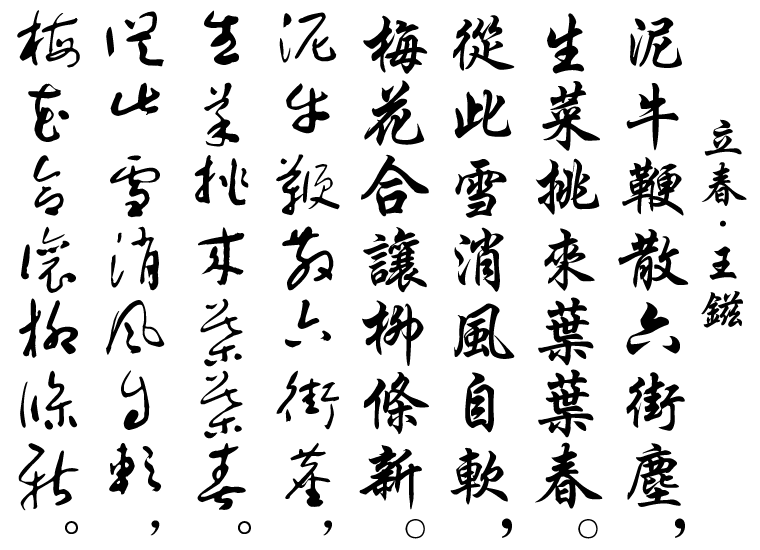 立春·王鎡
泥牛鞭散六街塵，
生菜挑來葉葉春○
從此雪消風自軟，
梅花合讓柳條新○
泥牛鞭散六街塵，
生菜挑來葉葉春。
從此雪消風自軟，
梅花合讓柳條新。